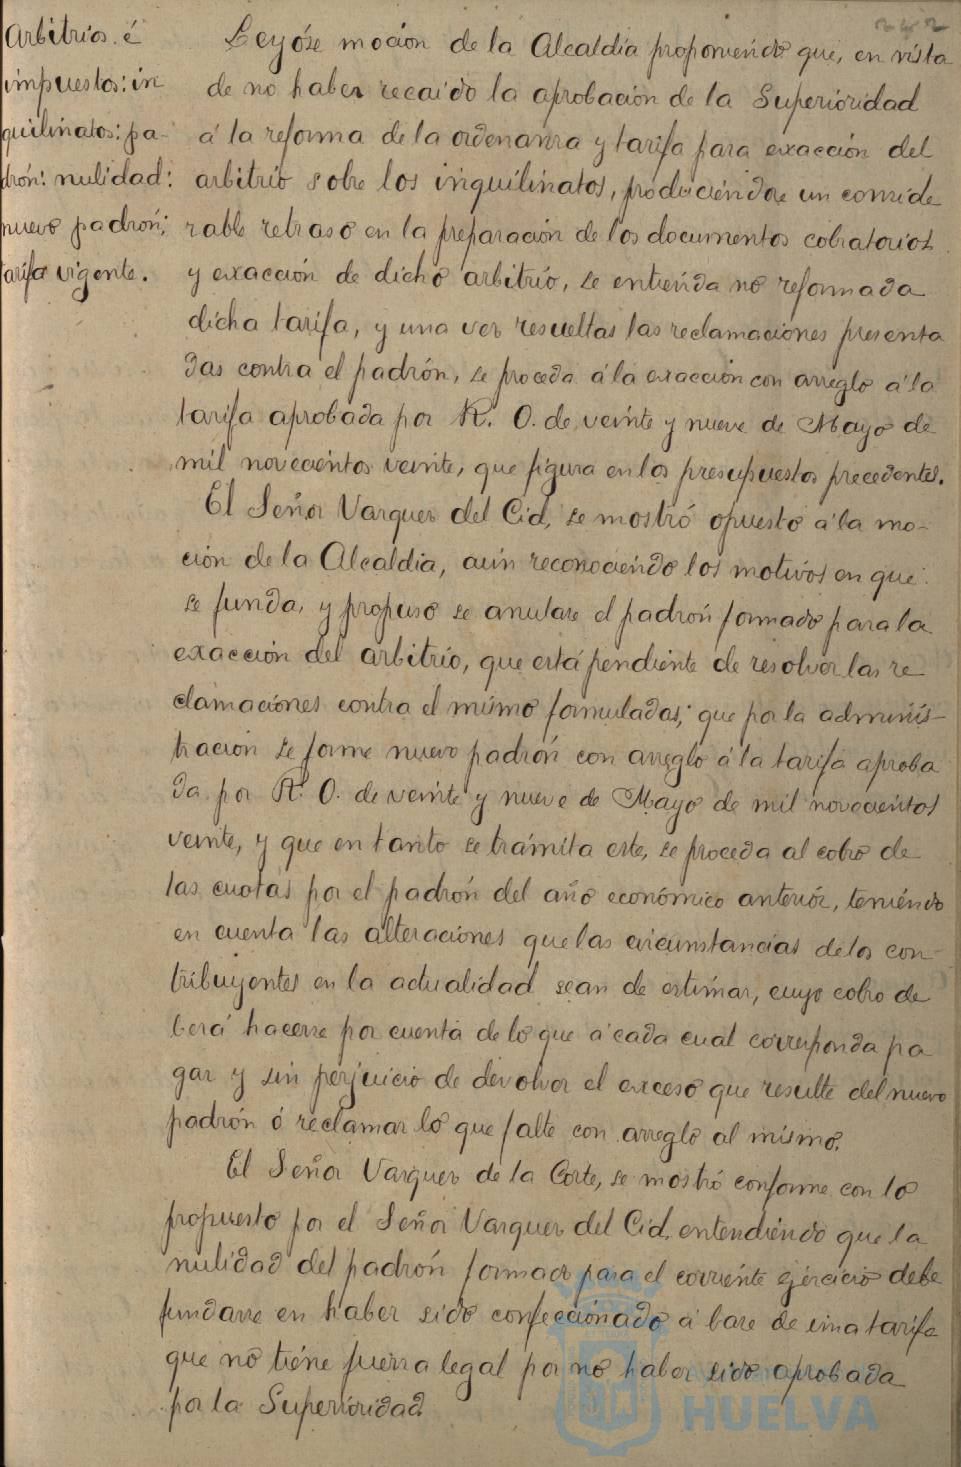 242
Arbitrios é
impuestos: in
quilinatos: pa-
drón: nulidad:
nuevo padrón;
tarifa vigente.
Leyóse moción de la Alcaldía proponiendo que, en vista
de no haber recaido la aprobación de la Superioridad
á la reforma de la ordenanza y tarifa para exacción del
arbitrio sobre los inquilinatos, produciéndose un conside
rable retraso en la preparación de los documentos cobratorios
y exacción de dicho arbitrio, se entienda no reformada
dicha tarifa, y una vez resueltas las reclamaciones presenta
das contra el padrón, se proceda á la exacción con arreglo á la
tarifa aprobada por R. O. de veinte y nueve de Mayo de
mil novecientos veinte, que figura en los presupuestos precedentes.
El Señor Vazquez del Cid, se mostró opuesto á la mo-
ción de la Alcaldia, aún reconociendo los motivos en que
se funda, y propuso se anulase el padrón formado para la
exacción del arbitrio, que está pendiente de resolver las re
clamaciones contra el mismo formuladas; que por la adminis-
tracion se forme nuevo padrón con arreglo á la tarifa aproba
da por R. O. de veinte y nueve de Mayo de mil novecientos
veinte, y que en tanto se trámita este, se proceda al cobro de
las cuotas por el padrón del año económico anterior, teniendo
en cuenta las alteraciones que las circunstancias de los con-
tribuyentes en la actualidad sean de estimar, cuyo cobro de
berá hacerse por cuenta de lo que á cada cual corresponda pa
gar y sin perjuicio de devolver el exceso que resulte del nuevo
padrón ó reclamar lo que falte con arreglo al mismo.
El Señor Vazquez de la Corte, se mostró conforme con lo
propuesto por el Señor Vazquez del Cid, entendiendo que la
nulidad del padrón formado para el corriente ejercicio debe
fundarse en haber sido confeccionado á base de una tarifa
que no tiene fuerza legal por no haber sido aprobada
por la Superioridad.
HUELVA